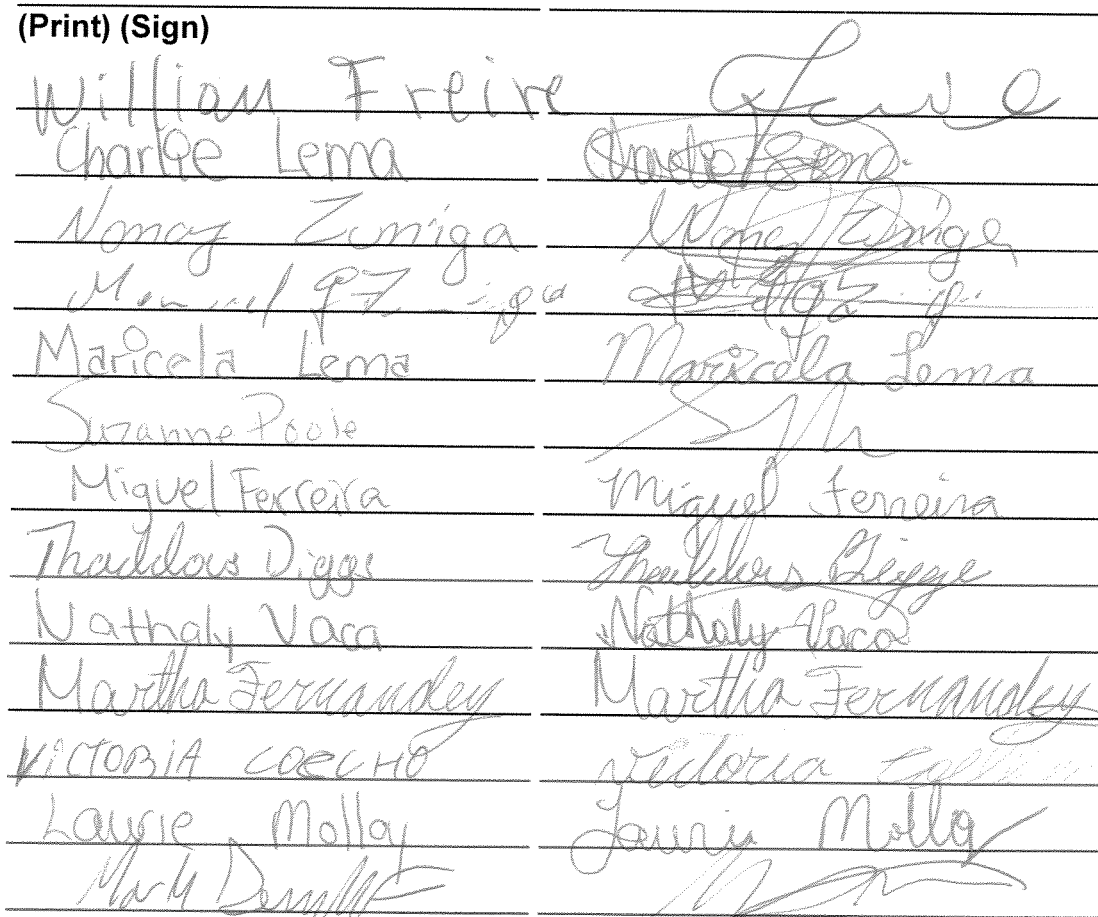 (Print) (Sign)
William Freire Freire
Charlie Lema Charlie Lema
Nancy Zuniga Nancy Zuniga
Manuel Zuniga
Maricela Lema Maricela Lema
Suzanne Poole
Miguel Ferreira Miguel Ferreira
Thaddous Diggs Thaddeus Diggs
Nathaly Vaca Nathaly Vaca
Martha Fernandez Martha Fernandez
VICTORIA COECHO Victoria
Laurie Molloy Laurie Molloy
Mark